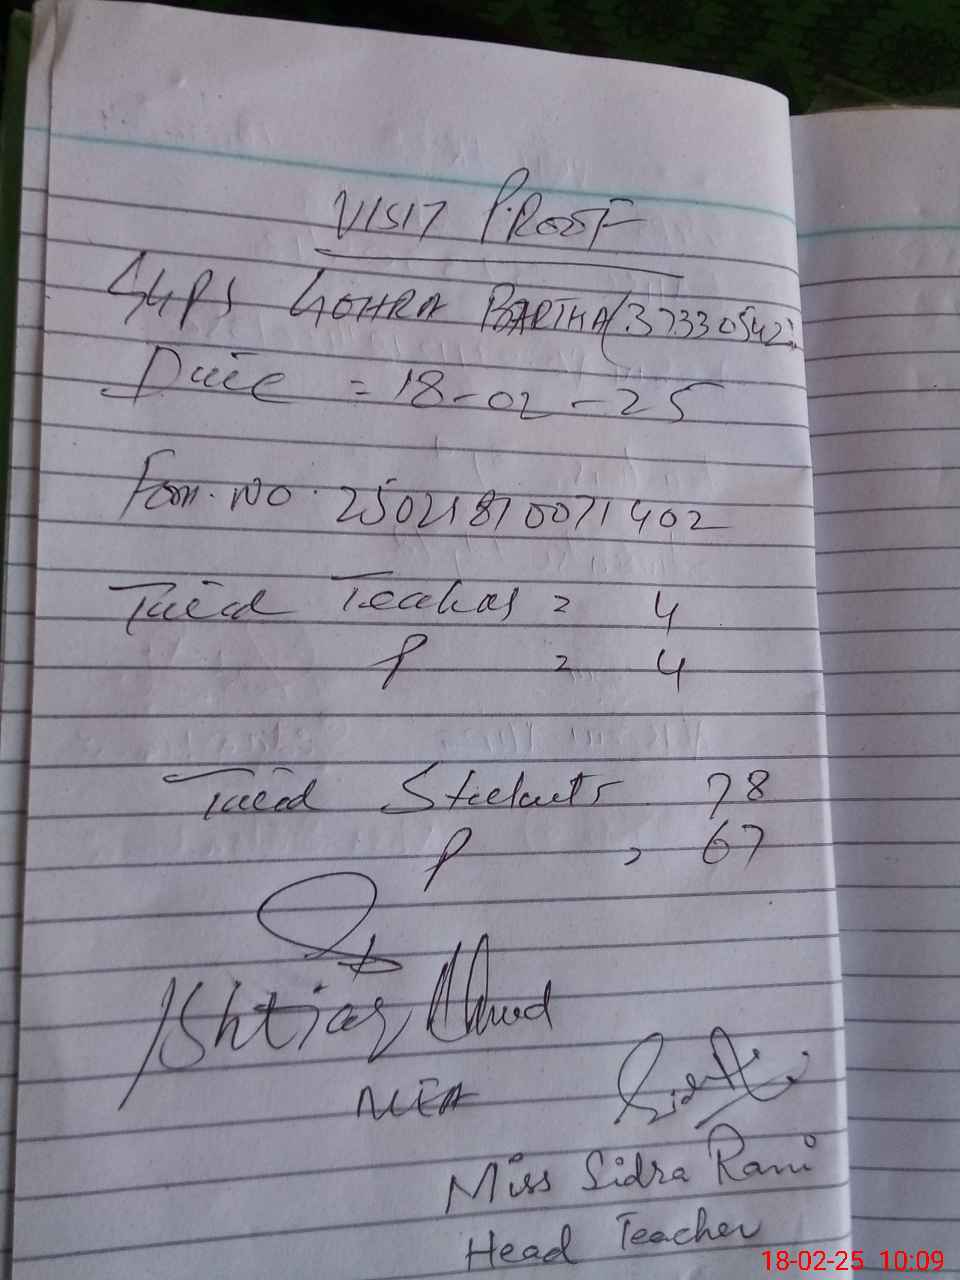 VISIT PROOF
GGPS GOHRA BARTHA (37330542)
Date = 18-02-25
Form. No. 25021810071402
Total Teachers = 4
P = 4
Total Students 78
P = 67
Ishtiaq Ahmed
MEA
Miss Sidra Rani
Head Teacher
18-02-25 10:09